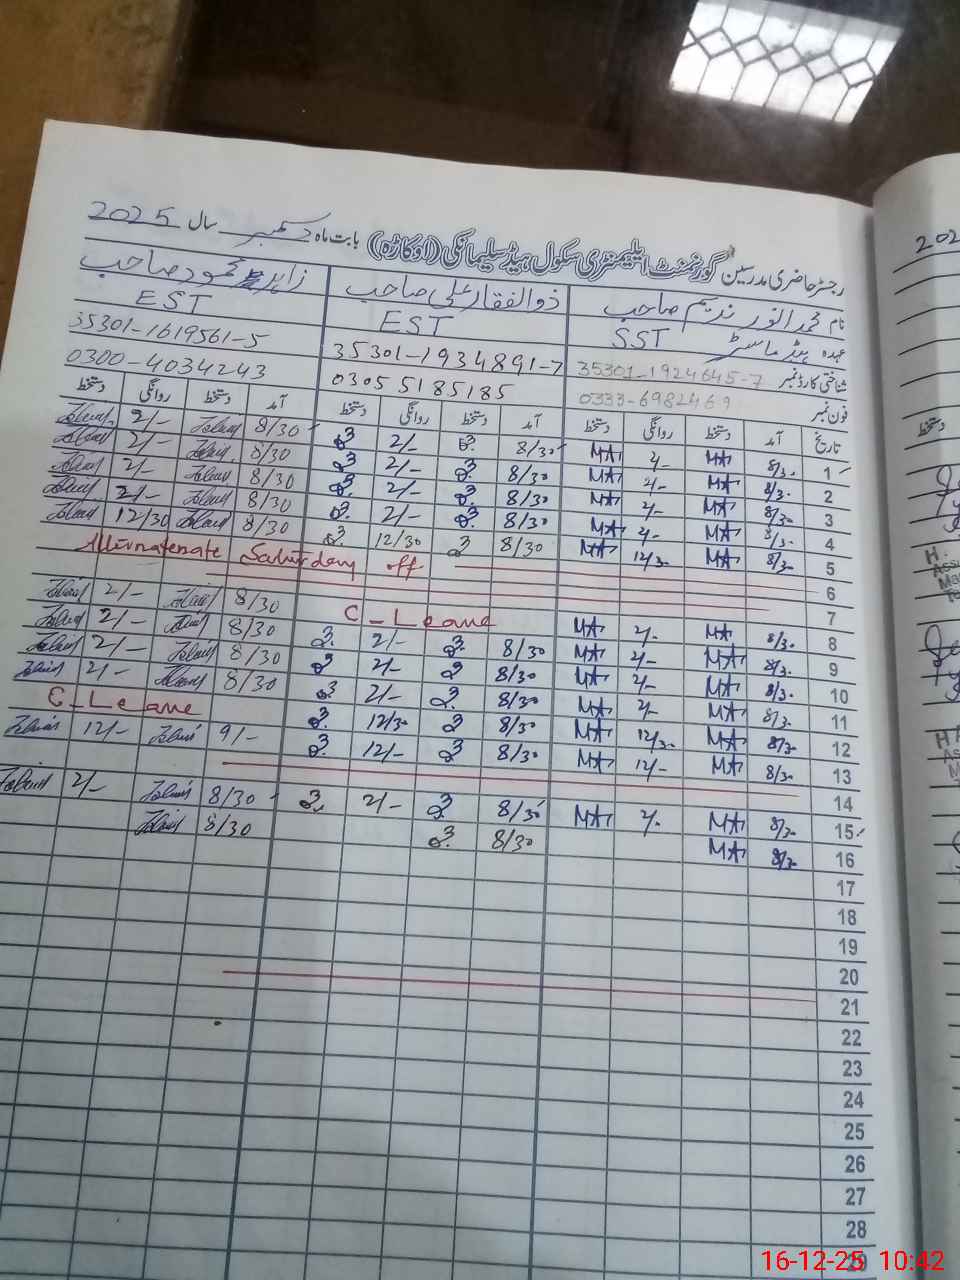 رجسٹر حاضری مدرسین گورنمنٹ ایلیمنٹری سکول ہیڈ سلیمانکی (اوکاڑہ) بابت ماہ دسمبر سال 2025
نام محمد انور ندیم صاحب ذوالفقار علی صاحب زاہد محمود صاحب
عہدہ ہیڈ ماسٹر SST EST EST
شناختی کارڈ نمبر 35301-1924645-7 35301-1934891-7 35301-1619561-5
فون نمبر 0333-6982469 03055185185 0300-4034243
تاریخ آمد دستخط روانگی دستخط آمد دستخط روانگی دستخط آمد دستخط روانگی دستخط
1 8/30 MA 2/- MA 8/30 2/- 8/30 2/-
2 8/30 MA 2/- MA 8/30 2/- 8/30 2/-
3 8/30 MA 2/- MA 8/30 2/- 8/30 2/-
4 8/30 MA 2/- MA 8/30 2/- 8/30 2/-
5 8/30 MA 12/30 MA 8/30 12/30 8/30 12/30
6 Alternatenate Saturday off
7
8 8/30 MA 2/- MA C-Leave 8/30 2/-
9 8/30 MA 2/- MA 8/30 2/- 8/30 2/-
10 8/30 MA 2/- MA 8/30 2/- 8/30 2/-
11 8/30 MA 2/- MA 8/30 2/- 8/30 2/-
12 8/30 MA 12/30 MA 8/30 12/30 C-Leave
13 8/30 MA 12/- MA 8/30 12/- 9/- 12/-
14
15 8/30 MA 2/- MA 8/30 2/- 8/30 2/-
16 8/30 MA 8/30 8/30
17
18
19
20
21
22
23
24
25
26
27
28
29
202
دستخط
16-12-25 10:42